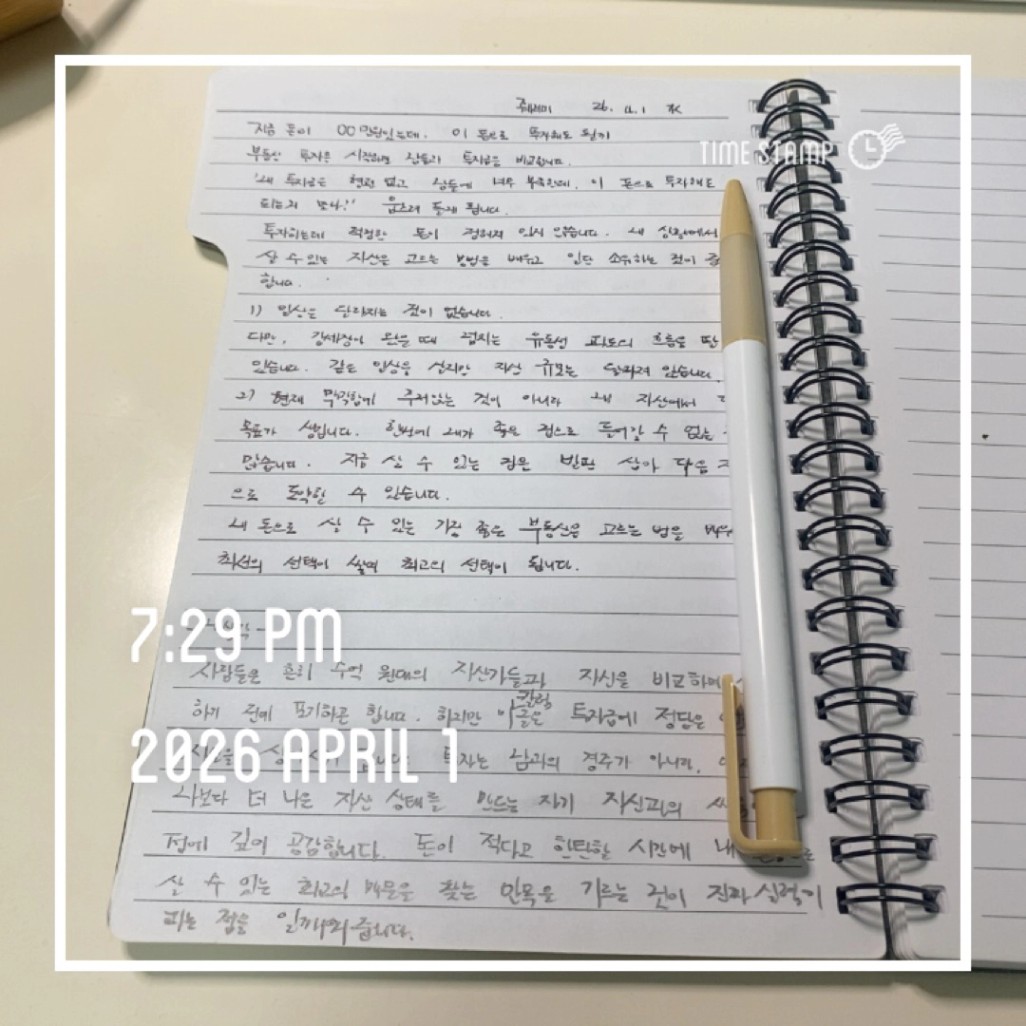 26. 4. 1 水
지금 돈이 00만원있는데. 이 돈으로 투자해도 될까
부동산 투자를 시작하면 남들과 투자금을 비교합니다.
"내 투자금은 현저 없고 남들에 너무 부족한데, 이 돈으로 투자해도
되는지 몰라!" 움츠려 들게 됩니다.
TIME STAMP
투자하는데 적정한 돈이 정해져 있지 않습니다. 내 상황에서
살 수 있는 자산을 고르는 방법을 배우고 일단 소유하는 것이
합니다.
1) 일상은 달라지는 것이 없습니다.
다만, 강세장이 왔을 때 퍼지는 유동성 파도의 흐름을
있습니다. 같은 일상을 살지만 자산 규모는 달라져 있습니다.
2) 현재 막막함에 주저앉는 것이 아니라 내 자산에서
목표가 생깁니다. 한번에 내가 좋은 집으로 들어갈 수 없는
많습니다. 지금 살 수 있는 집을 발판 삼아 다음
으로 도약할 수 있습니다.
내 돈으로 살 수 있는 가장 좋은 부동산을 고르는 법을
최선의 선택이 쌓여 최고의 선택이 됩니다.
7:29 PM
사람들은 흔히 수억 원대의 자산가들과 자신을 비교하며
하기 전에 포기하곤 합니다. 하지만 이 칼럼은 투자금에 정답은
2026 APRIL 1
투자는 남과의 경주가 아니라,
나보다 더 나은 자산 상태를 만드는 자기 자신과의
점에 깊이 공감합니다. 돈이 적다고 한탄할 시간에 내
살 수 있는 최고의 매물을 찾는 안목을 기르는 것이 진짜 실력이
라는 점을 일깨워줍니다.